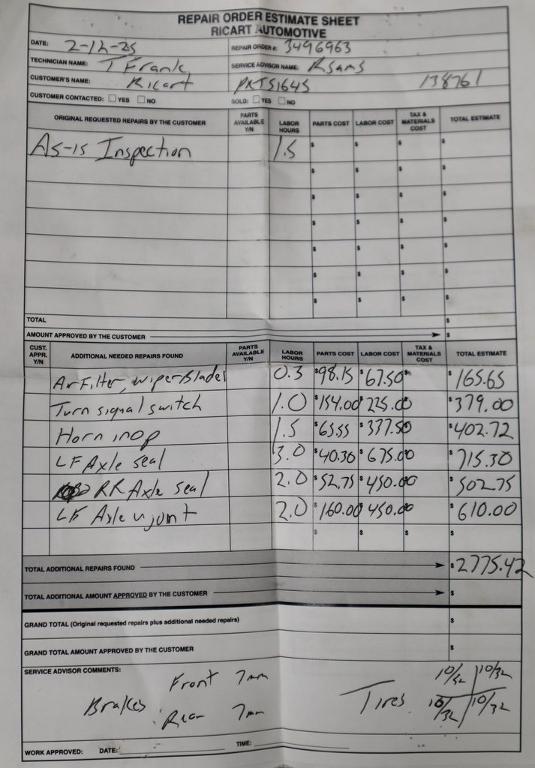 REPAIR ORDER ESTIMATE SHEET
RICART AUTOMOTIVE
DATE: 2-12-25 REPAIR ORDER #: 3496963
TECHNICIAN NAME: T Frank SERVICE ADVISOR NAME: RSams
CUSTOMER'S NAME: Ricart PKTS1645 138761
CUSTOMER CONTACTED: YES NO SOLD: YES NO
ORIGINAL REQUESTED REPAIRS BY THE CUSTOMER PARTS AVAILABLE Y/N LABOR HOURS PARTS COST LABOR COST TAX & MATERIALS COST TOTAL ESTIMATE
As-is Inspection 1.5 $ $ $ $
$ $ $ $
$ $ $ $
$ $ $ $
$ $ $ $
$ $ $ $
$ $ $ $
TOTAL $
AMOUNT APPROVED BY THE CUSTOMER $
CUST. APPR. Y/N ADDITIONAL NEEDED REPAIRS FOUND PARTS AVAILABLE Y/N LABOR HOURS PARTS COST LABOR COST TAX & MATERIALS COST TOTAL ESTIMATE
Air Filter, wiper Blades 0.3 $98.15 $67.50 $ $165.65
Turn signal switch 1.0 $154.00 $225.00 $ $379.00
Horn inop 1.5 $ $ 377.50 $ $402.72
LF Axle seal 3.0 $40.30 $675.00 $ $715.30
RR Axle seal 2.0 $52.75 $450.00 $ $502.75
LF Axle ujoint 2.0 $160.00 $450.00 $ $610.00
$ $ $ $
TOTAL ADDITIONAL REPAIRS FOUND $2775.42
TOTAL ADDITIONAL AMOUNT APPROVED BY THE CUSTOMER $
GRAND TOTAL (Original requested repairs plus additional needed repairs) $
GRAND TOTAL AMOUNT APPROVED BY THE CUSTOMER $
SERVICE ADVISOR COMMENTS:
Brakes Front 7mm
Rear 7mm
Tires 10/32 10/32
10/32 10/32
WORK APPROVED: DATE: TIME: